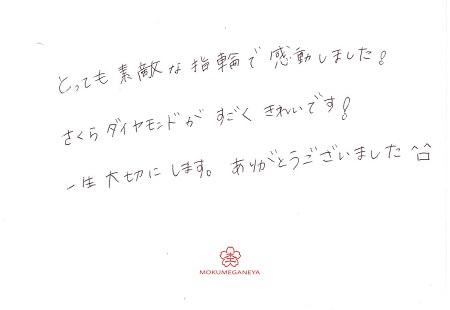 とっても素敵な指輪で感動しました!
さくらダイヤモンドがすごくきれいです!
一生大切にします。ありがとうございました ^□^
MOKUMEGANEYA